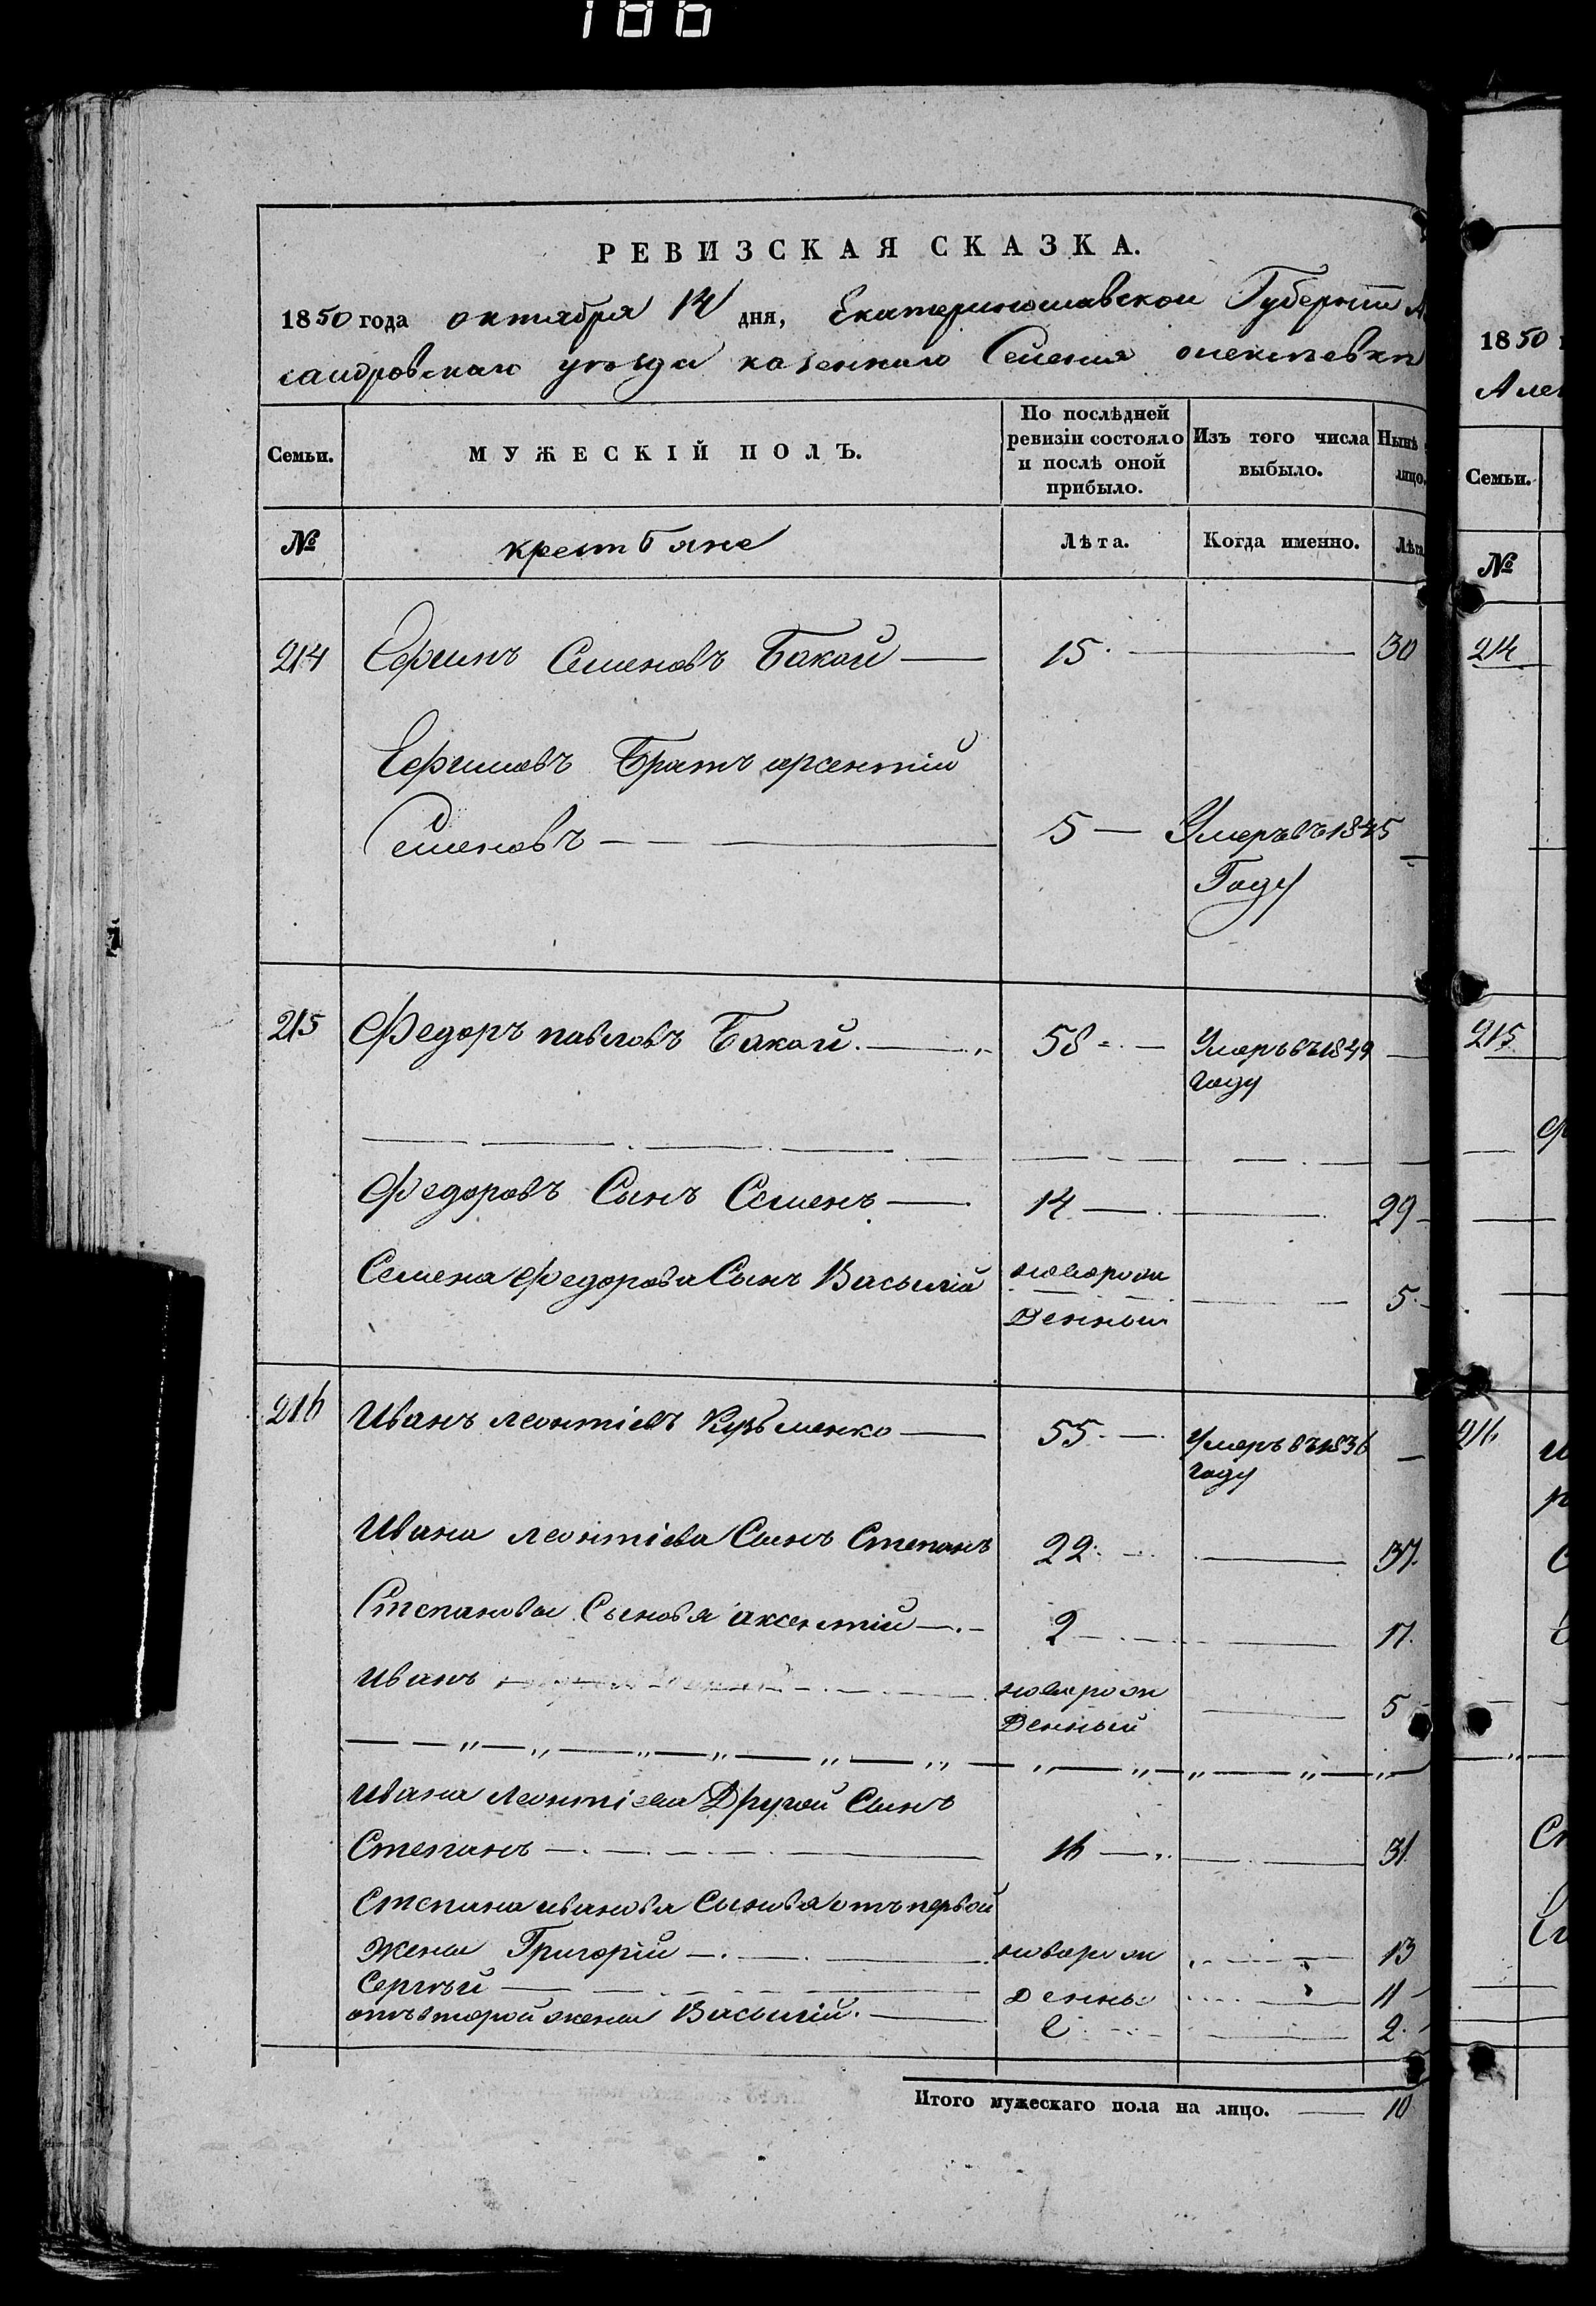 186
РЕВИЗСКАЯ СКАЗКА.
1850 года октября 14 дня, Екатеринославской Губерніи
сандровскаго уѣзда казеннаго Селенія
Семьи. МУЖЕСКІЙ ПОЛЪ. По послѣдней ревизіи состояло и послѣ оной прибыло. Изъ того числа выбыло. Нынѣ лицо.
№ крестбяне Лѣта. Когда именно. Лѣта
214 Ефимъ Семеновъ Бакай 15. 30
Ефимовъ Братъ арсентій
Семеновъ 5 Умеръ въ 1845
Году
215 Федоръ павловъ Бакай. 58 Умеръ въ 1849
году
Федоровъ Сынъ Семенъ 14 29
Семена Федорова Сынъ Василій новорож 5
денный
216 Иванъ леонтіевъ Кузьменко 55 Умеръ въ 1836
году
Ивана леонтіева Сынъ Степанъ 22 37.
Степановы Сыновя аксентій 2 17.
Иванъ новорож 5
денный
Ивана Леонтіева Другой Сынъ
Степанъ 16 31.
Степана иванова Сыновя отъ первой
жены Григорій новорож 13
Сергѣй денны 11
отъ второй жены Василій. е 2
Итого мужескаго пола на лицо. 10
1850
Алек
Семьи.
№
214
215
216